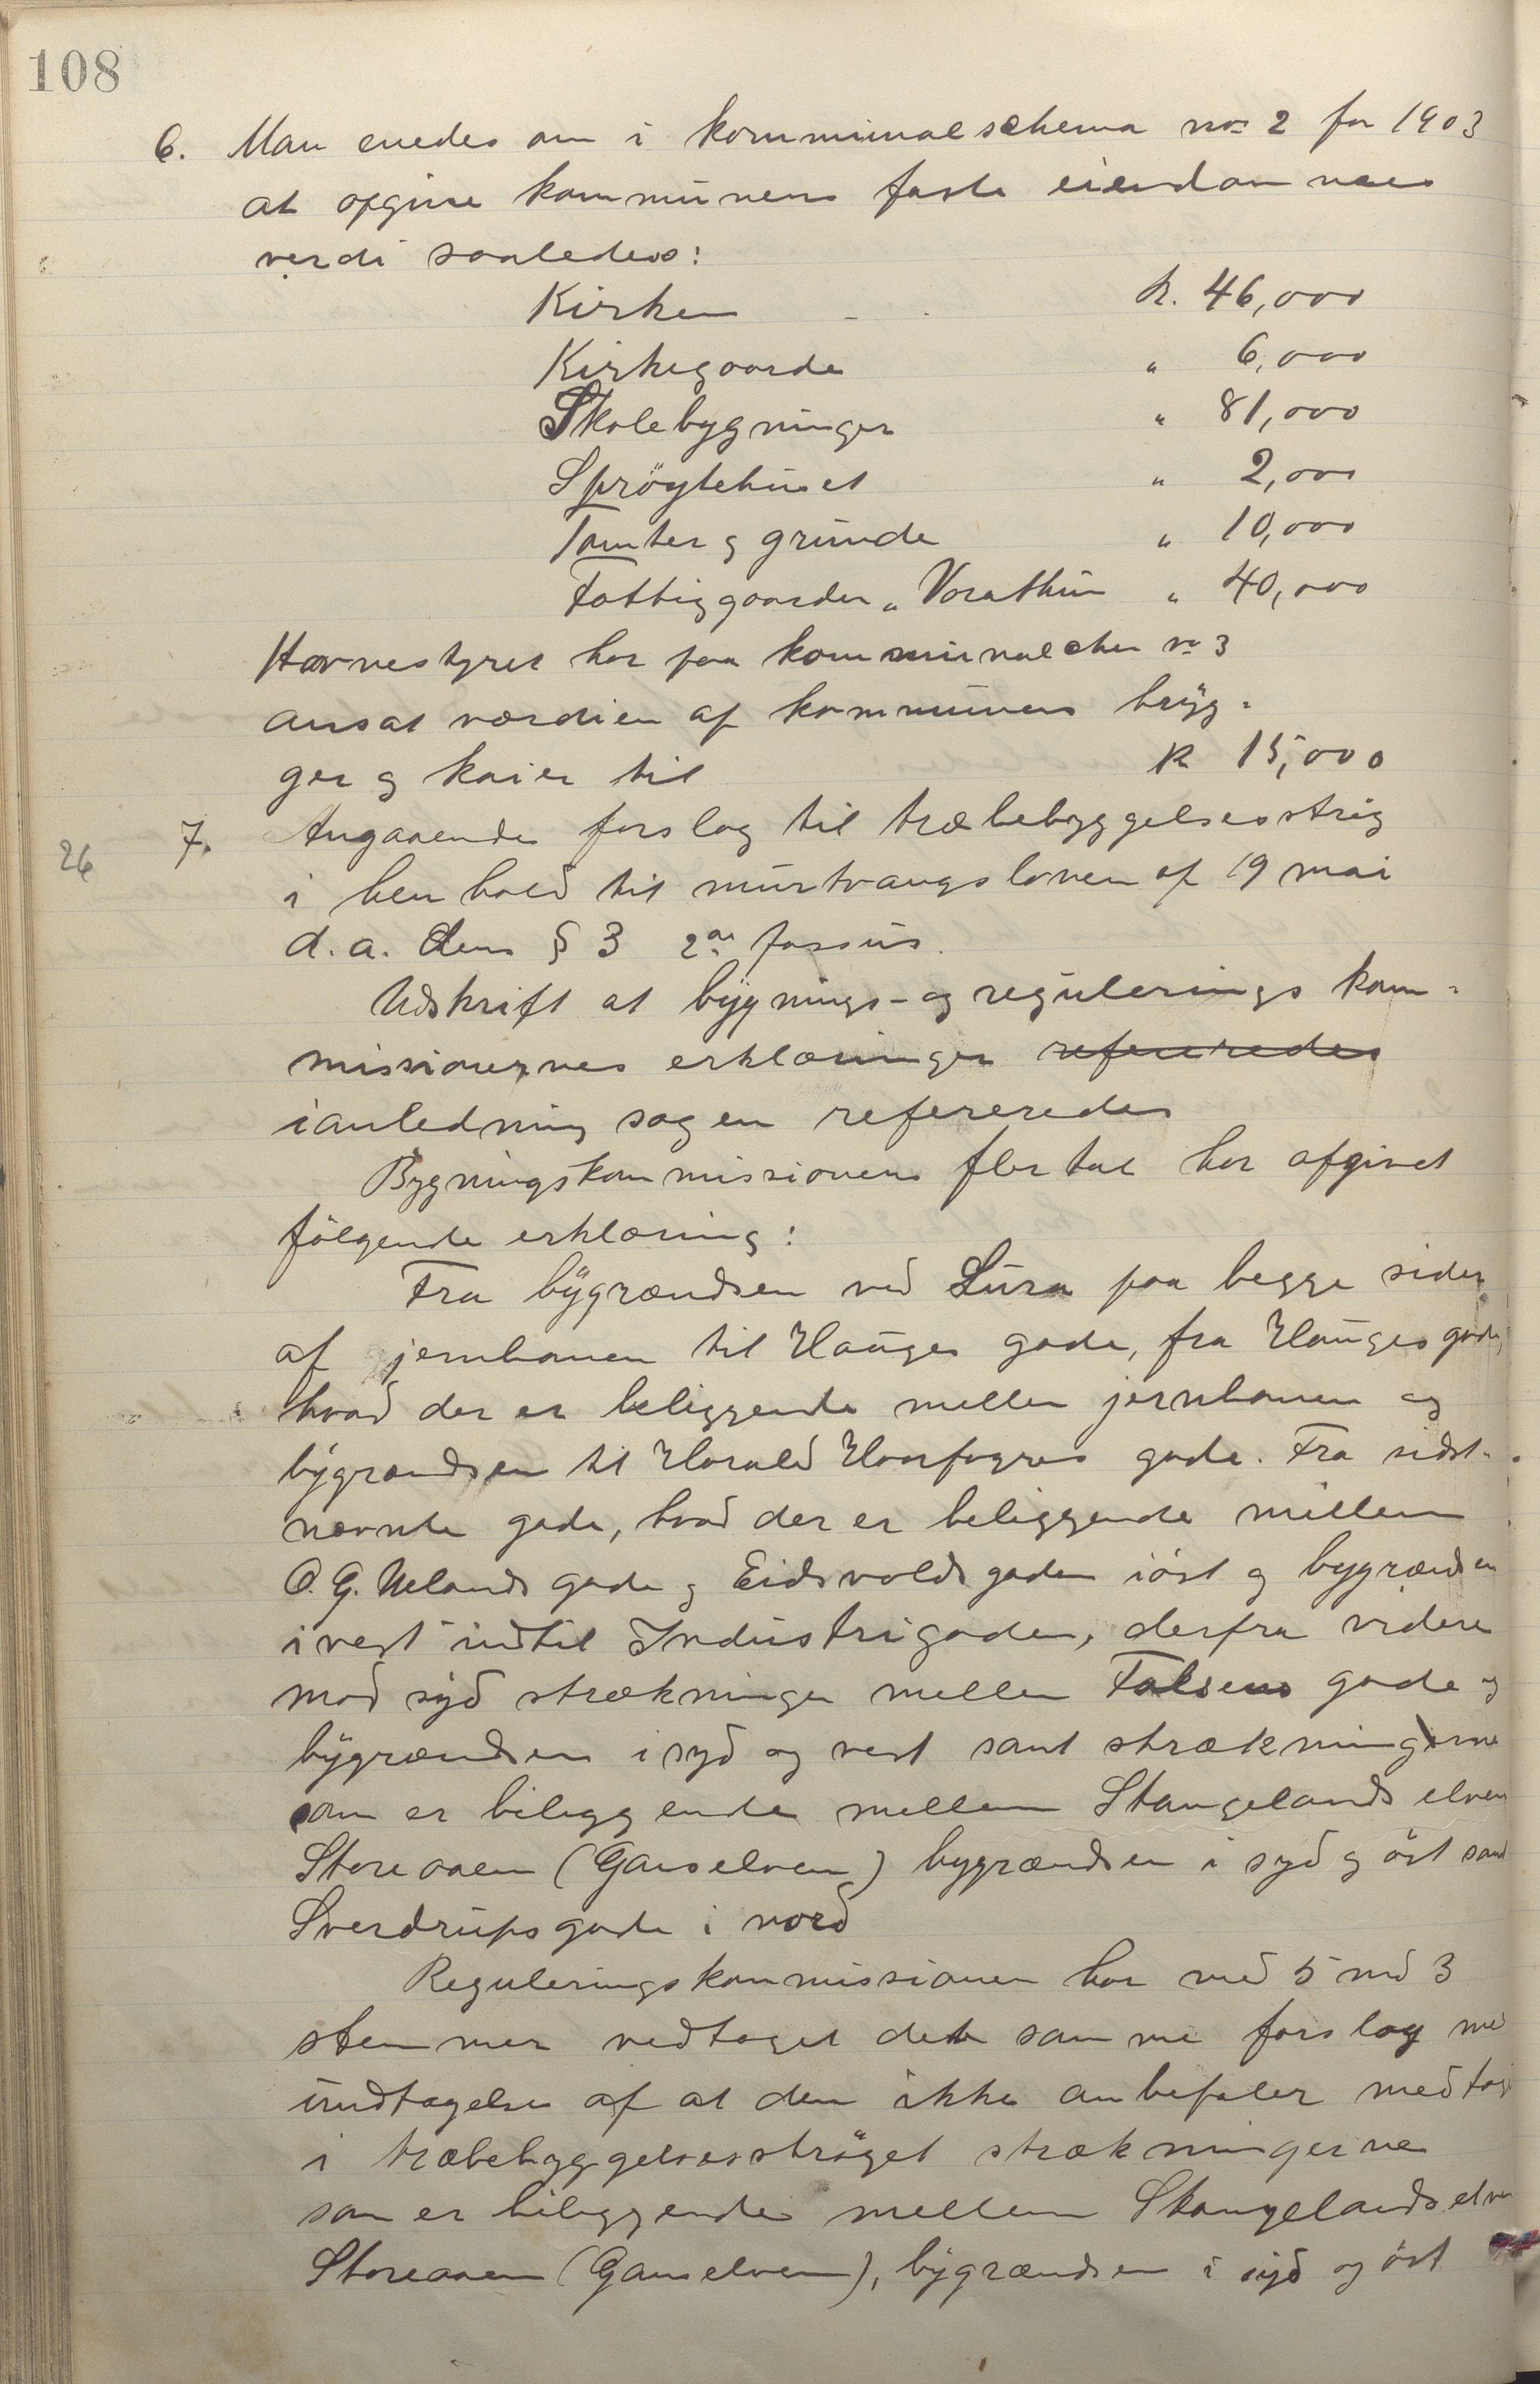 108
6. Man enedes om i kommunalschema no 2 for 1903
at opgive kommunens faste eiendommes
verdi saaledes:
Kirken - . k. 46,000
Kirkegaarde " 6,000
Skolebygninger " 81,000
Spröytehuset " 2,000
Tomter og grunde " 10,000
Fattiggaarden „Vorathun " 40,000
Havnestyret har paa kommunalschem no 3
ansat værdien af kommunens bryg=
ger og kaier til k 15,000
26 7. Angaaende forslag til træbebyggelsesströg
i henhold til murtvangsloven af 19 mai
d.a. dens § 3 2det passus.
Udskrift at bygnings- og regulerings kom=
missionernes erklæringer refereredes
ianledning sagen refereredes
Bygningskommissionens flertal har afgivet
følgende erklæring:
Fra bygrændsen ved Lura paa begge sider
af jernbanen til Hauges gade, fra Hauges gade
hvad der er beliggende mellem jernbanen og
bygrændsen til Harald Haarfagres gade. Fra sidst-
nævnte gade, hvad der er beliggende mellem
O. G. Uelands gade og Eidsvolds gaden iöst og bygrændsen
ivest indtil Industrigaden, derfra videre
mod syd strækningen mellem Falsens gade og
bygrændsen i syd og vest samt strækningerne
som er beliggende mellem Stangelands elven
Storeaaen (Ganselven) bygrændsen i syd og öst samt
Sverdrups gade i nord
Reguleringskommissionen har med 5 mod 3
stemmer vedtaget dette samme forslag med
undtagelse af at den ikke anbefaler medtat
i træbebyggelsesströget strækningerne
som er beliggende mellem Stangelands elven
Storeaaen (Ganselven), bygrændsen i syd og öst